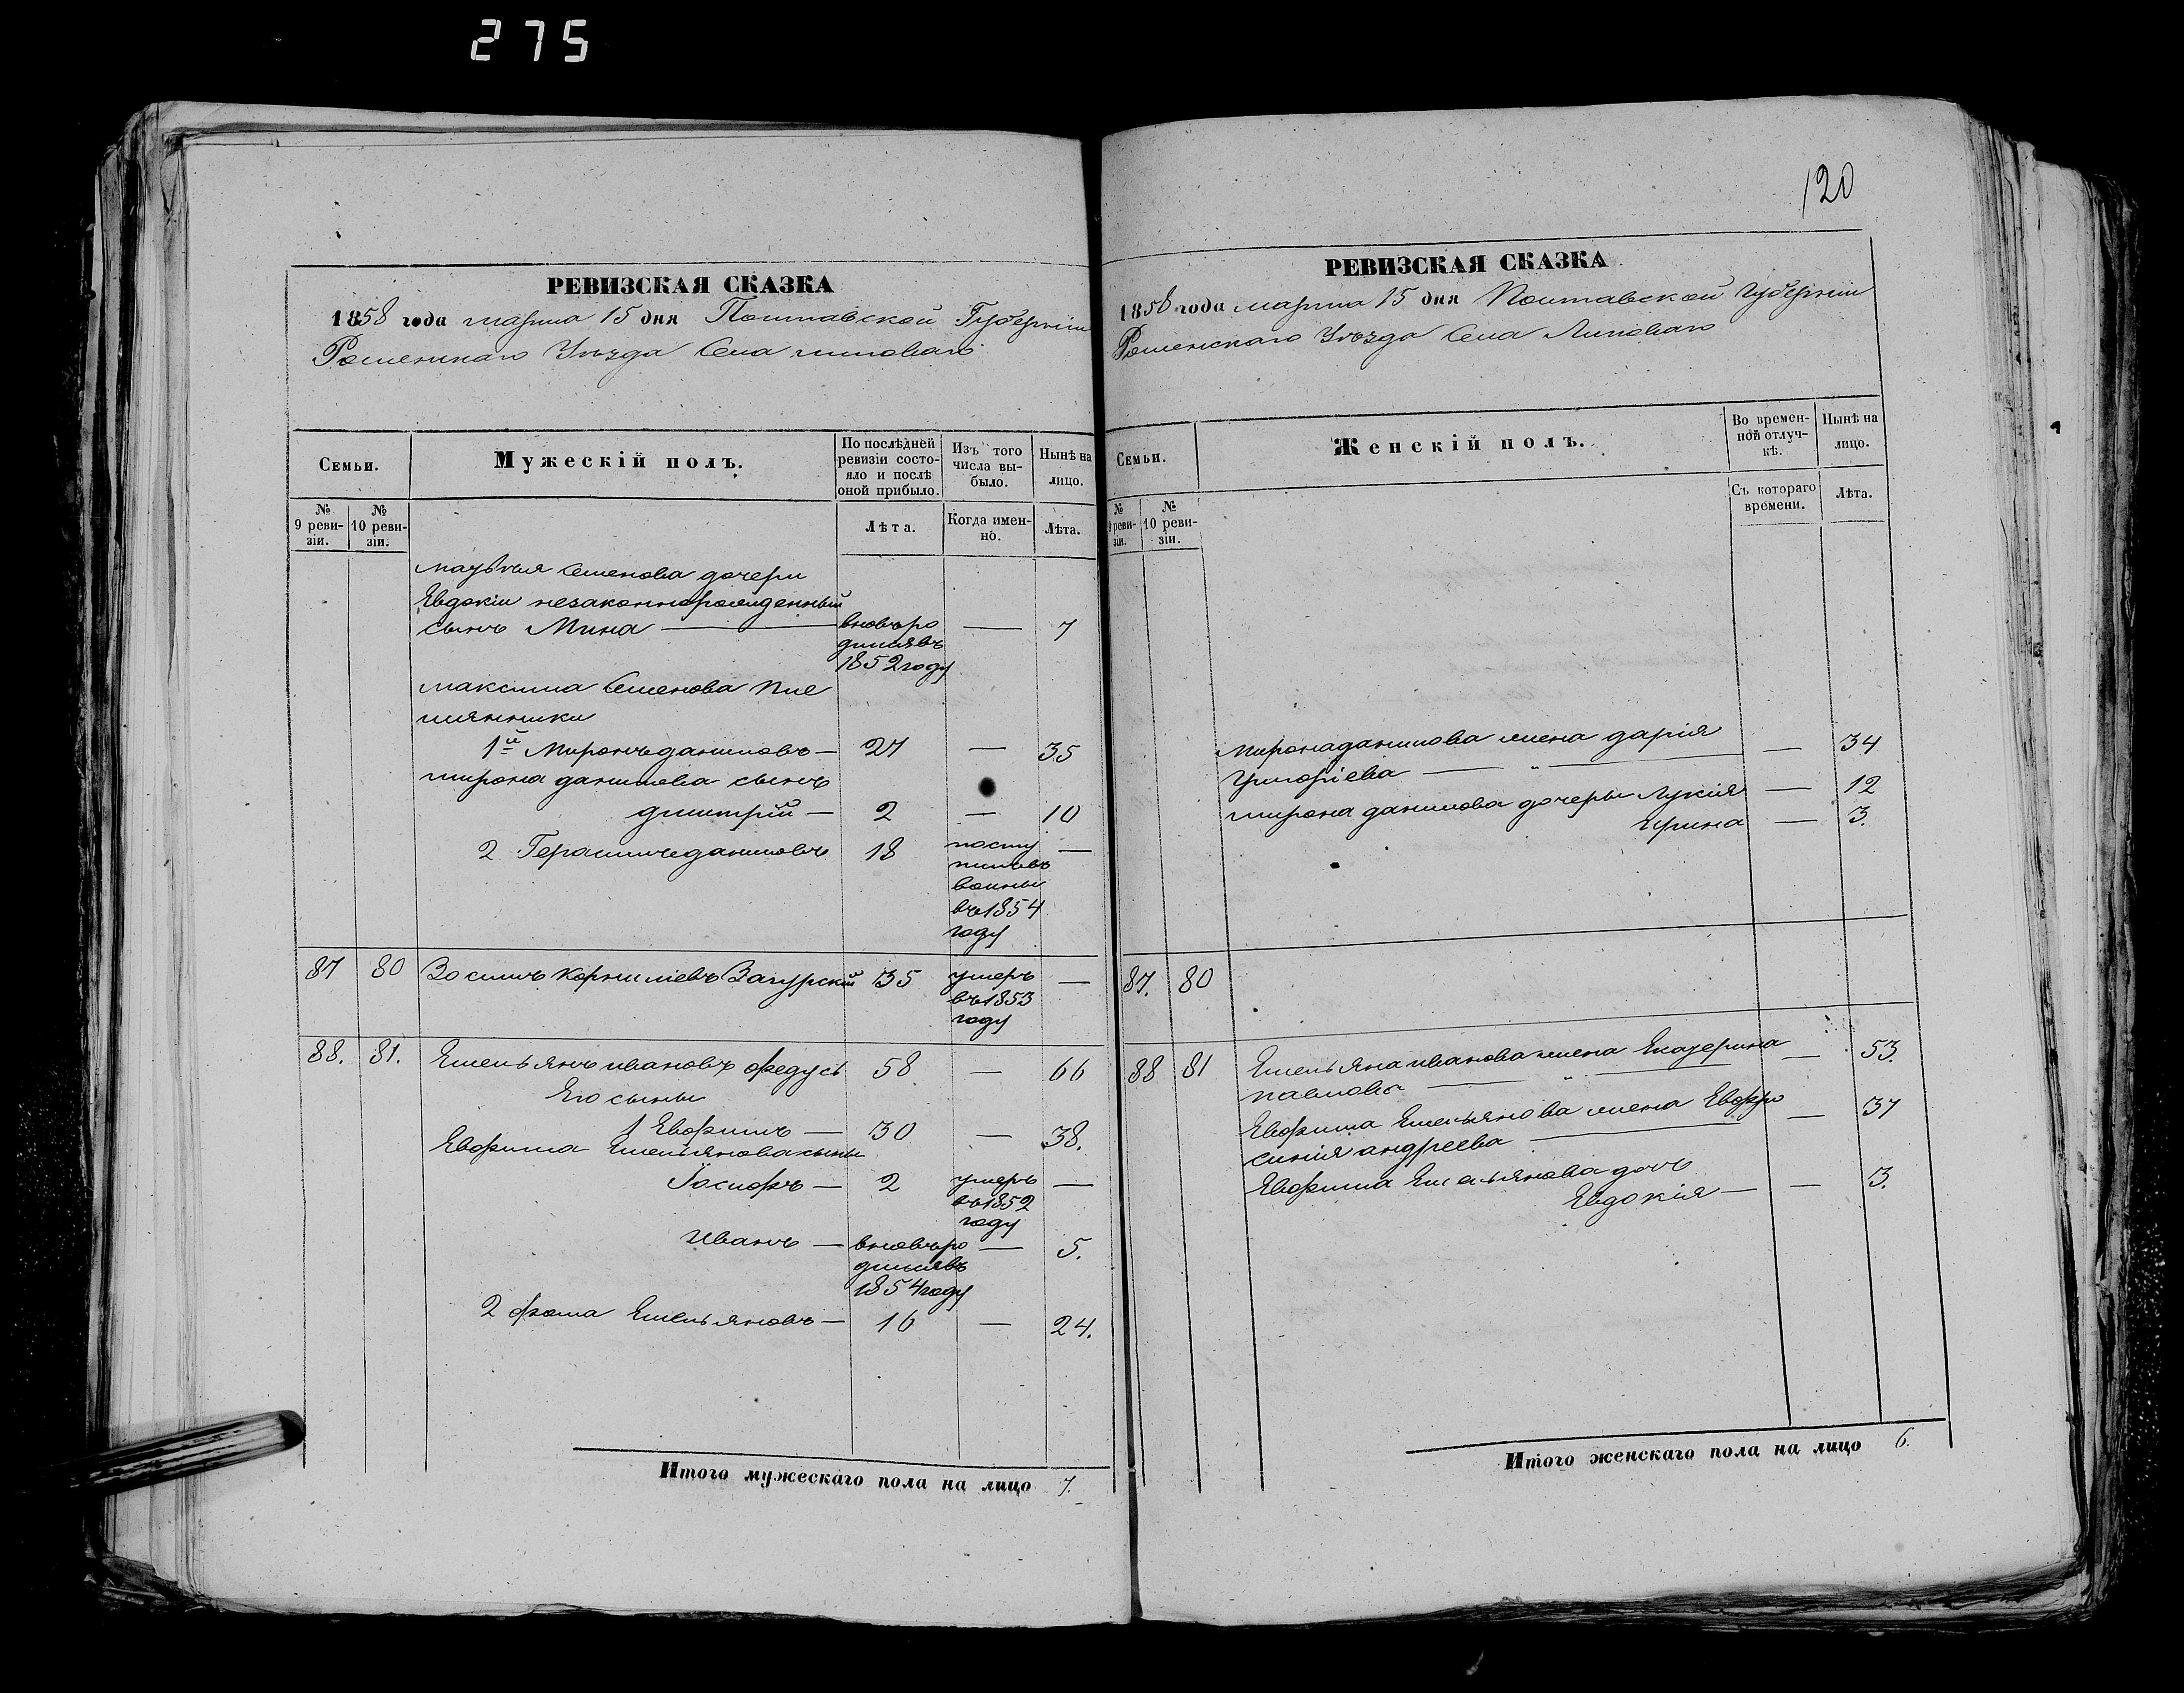 275
РЕВИЗСКАЯ СКАЗКА
1858 года марта 15 дня Полтавской Губерніи
Роменскаго Уѣзда Села липоваго
Семьи.
Мужескій полъ.
По послѣдней ревизіи состояло и послѣ оной прибыло.
Изъ того числа выбыло.
Нынѣ на лицо.
№ 9 ревизіи.
№ 10 ревизіи.
Лѣта.
Когда именно.
Лѣта.
Семенова дочери
Евдокіи незаконнорожденный
сынъ Мина — вновьро — 7
дилсявъ
1852 году
максима Семенова пле
мянники
1й Миронъ даниловъ — 27 — 35
мирона данилова сынъ
дмитрій — 2 — 10
2 Герасимъ даниловъ 18 посту —
пилъвъ
воины
въ 1854
году
87 80 Зосимъ Корниліевъ Загурскій 35 умеръ —
въ 1853
году
88. 81. Емельянъ ивановъ федусь 58 — 66
Его сыны
1 Евфимъ — 30 — 38.
Евфима Емельянова сыны
Іосифъ — 2 умеръ —
въ 1852
году
Иванъ — вновьро — 5.
дилсявъ
1854 году
2 фома Емельяновъ — 16 — 24.
Итого мужескаго пола на лицо 7.
120
РЕВИЗСКАЯ СКАЗКА
1858 года марта 15 дня Полтавской Губерніи
Роменскаго Уѣзда Села Липоваго
Семьи.
Женскій полъ.
Во временной отлучкѣ.
Нынѣ на лицо.
№ 9 ревизіи.
№ 10 ревизіи.
Съ котораго времени.
Лѣта.
Мирона данилова жена дарія
Григоріева — „ — — 34
мирона данилова дочеры Лукія — 12
Ирина — 3.
87. 80
88 81 Емельяна иванова жена Екатерина — 53.
павлова — „ —
Евфима Емельянова жена Евфро — 37
синія андреева —
Евфима Емельянова дочь
Евдокія — — 3.
Итого женскаго пола на лицо 6.